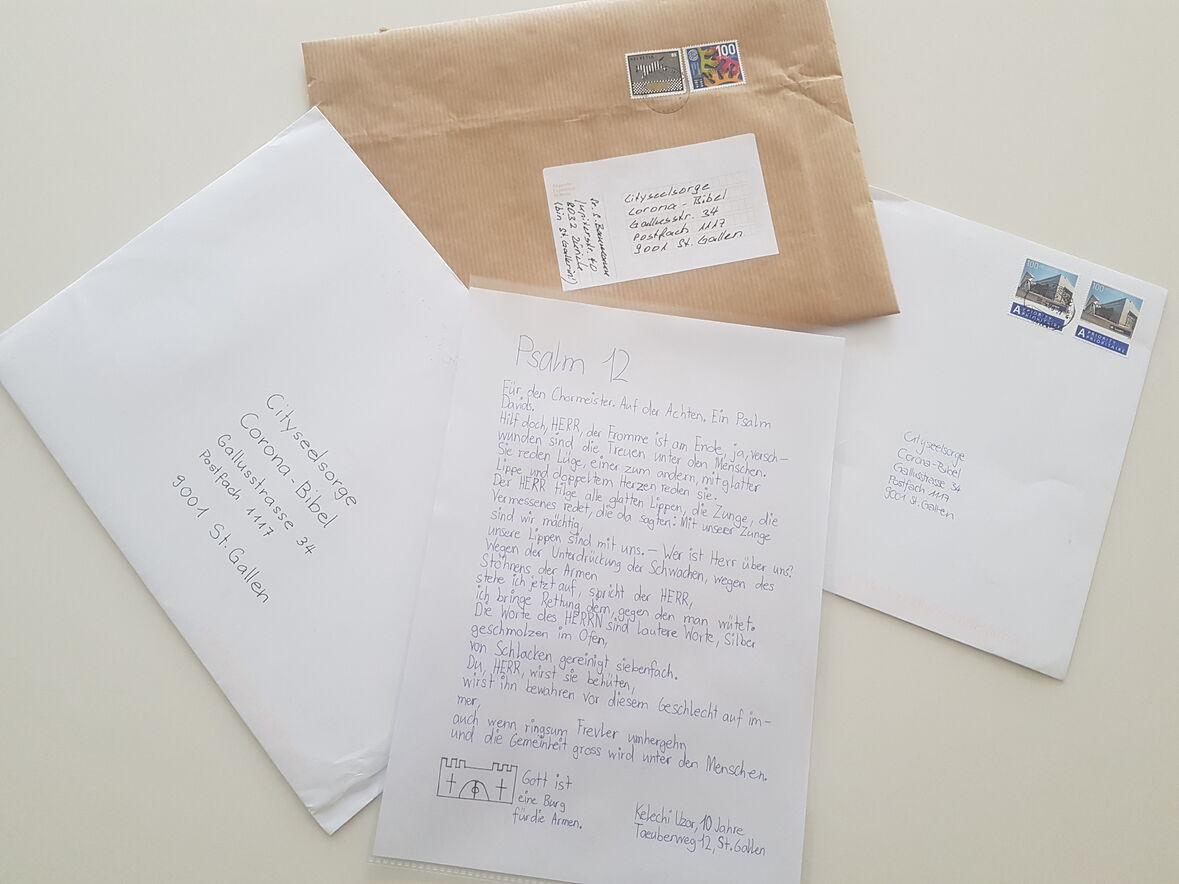 HELVETIA
85
100
Cityseelsorge
Corona-Bibel
Gallusstr. 34
Postfach 1117
9001 St. Gallen
Dr. E.
40
8032 Zürich
(bin St. Gallerin!)
Cityseelsorge
Corona-Bibel
Gallusstrasse 34
Postfach 1117
9001 St. Gallen
100
A PRIORITY
PRIORITAIRE
100
A PRIORITY
PRIORITAIRE
Cityseelsorge
Corona-Bibel
Gallusstrasse 34
Postfach 1117
9001 St. Gallen
Psalm 12
Für den Chormeister. Auf der Achten. Ein Psalm
Davids.
Hilf doch, HERR, der Fromme ist am Ende, ja, versch-
wunden sind die Treuen unter den Menschen.
Sie reden Lüge, einer zum andern, mit glatter
Lippe und doppeltem Herzen reden sie.
Der HERR tilge alle glatten Lippen, die Zunge, die
Vermessenes redet, die da sagten: Mit unserer Zunge
sind wir mächtig,
unsere Lippen sind mit uns. – Wer ist Herr über uns?
Wegen der Unterdrückung der Schwachen, wegen des
Stöhnens der Armen
stehe ich jetzt auf, spricht der HERR,
ich bringe Rettung dem, gegen den man wütet.
Die Worte des HERRN sind lautere Worte, Silber
geschmolzen im Ofen,
von Schlacken gereinigt siebenfach.
Du, HERR, wirst sie behüten,
wirst ihn bewahren vor diesem Geschlecht auf im-
mer,
auch wenn ringsum Frevler umhergehn
und die Gemeinheit gross wird unter den Menschen.
Gott ist
eine Burg
für die Armen.
Kelechi Uzor, 10 Jahre
Taeuberweg 12, St. Gallen